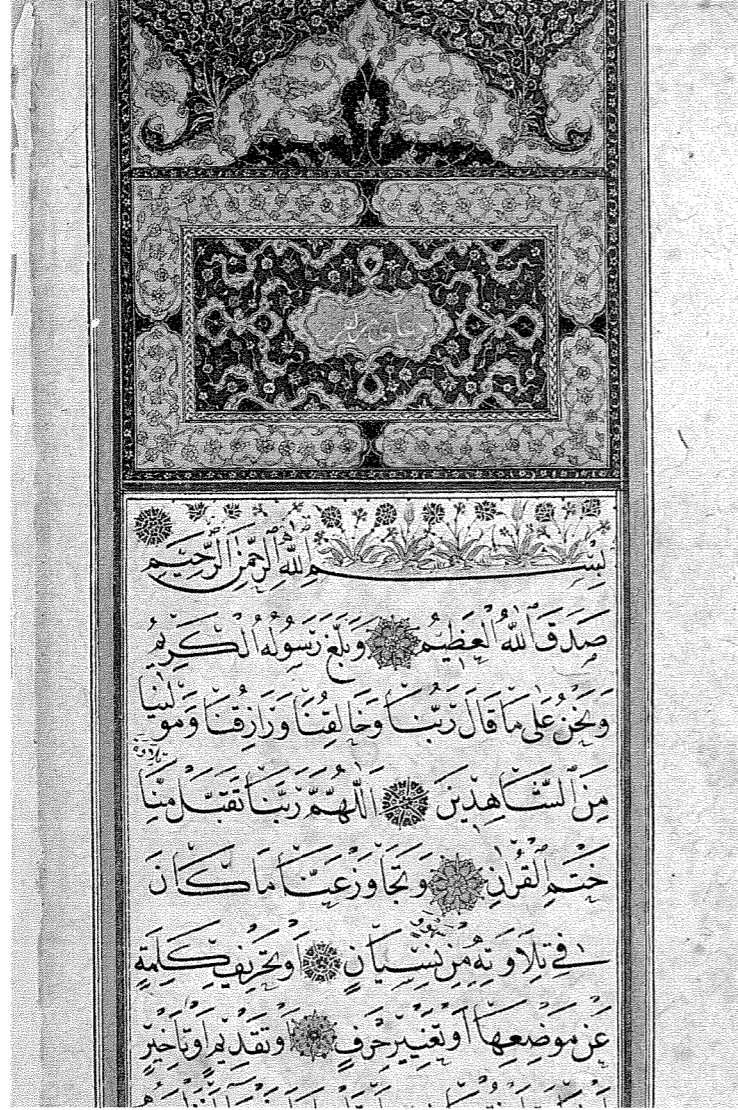 بِسْمِ ٱللَّهِ ٱلرَّحْمَٰنِ ٱلرَّحِيمِ
صَدَقَ ٱللَّهُ الْعَظِيمُ وَبَلَّغَ رَسُولُهُ الْكَرِيمُ
وَنَحْنُ عَلَىٰ مَا قَالَ رَبُّنَا وَخَالِقُنَا وَرَازِقُنَا وَمَوْلٰينَا
مِنَ ٱلشَّاهِدِينَ اَللّٰهُمَّ رَبَّنَا تَقَبَّلْ مِنَّا
تلاوة
خَتْمَ الْقُرْاٰنِ وَتَجَاوَزْ عَنَّا مَا كَانَ
فِي تِلَاوَتِهِ مِنْ نِسْيَانٍ اَوْ تَحْرِيفِ كَلِمَةٍ
عَنْ مَوْضِعِهَا اَوْ تَغْيِيرِ حَرْفٍ اَوْ تَقْدِيمٍ اَوْ تَاْخِيرٍ